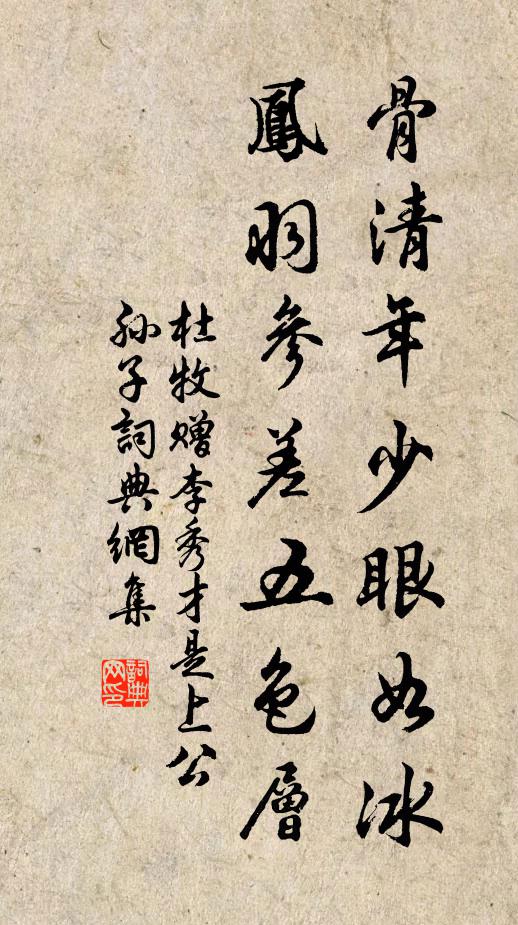 骨清年少眼如冰
鳳羽參差五色層
杜牧贈李秀才是上公
孫子詞典網集
詞典
网印